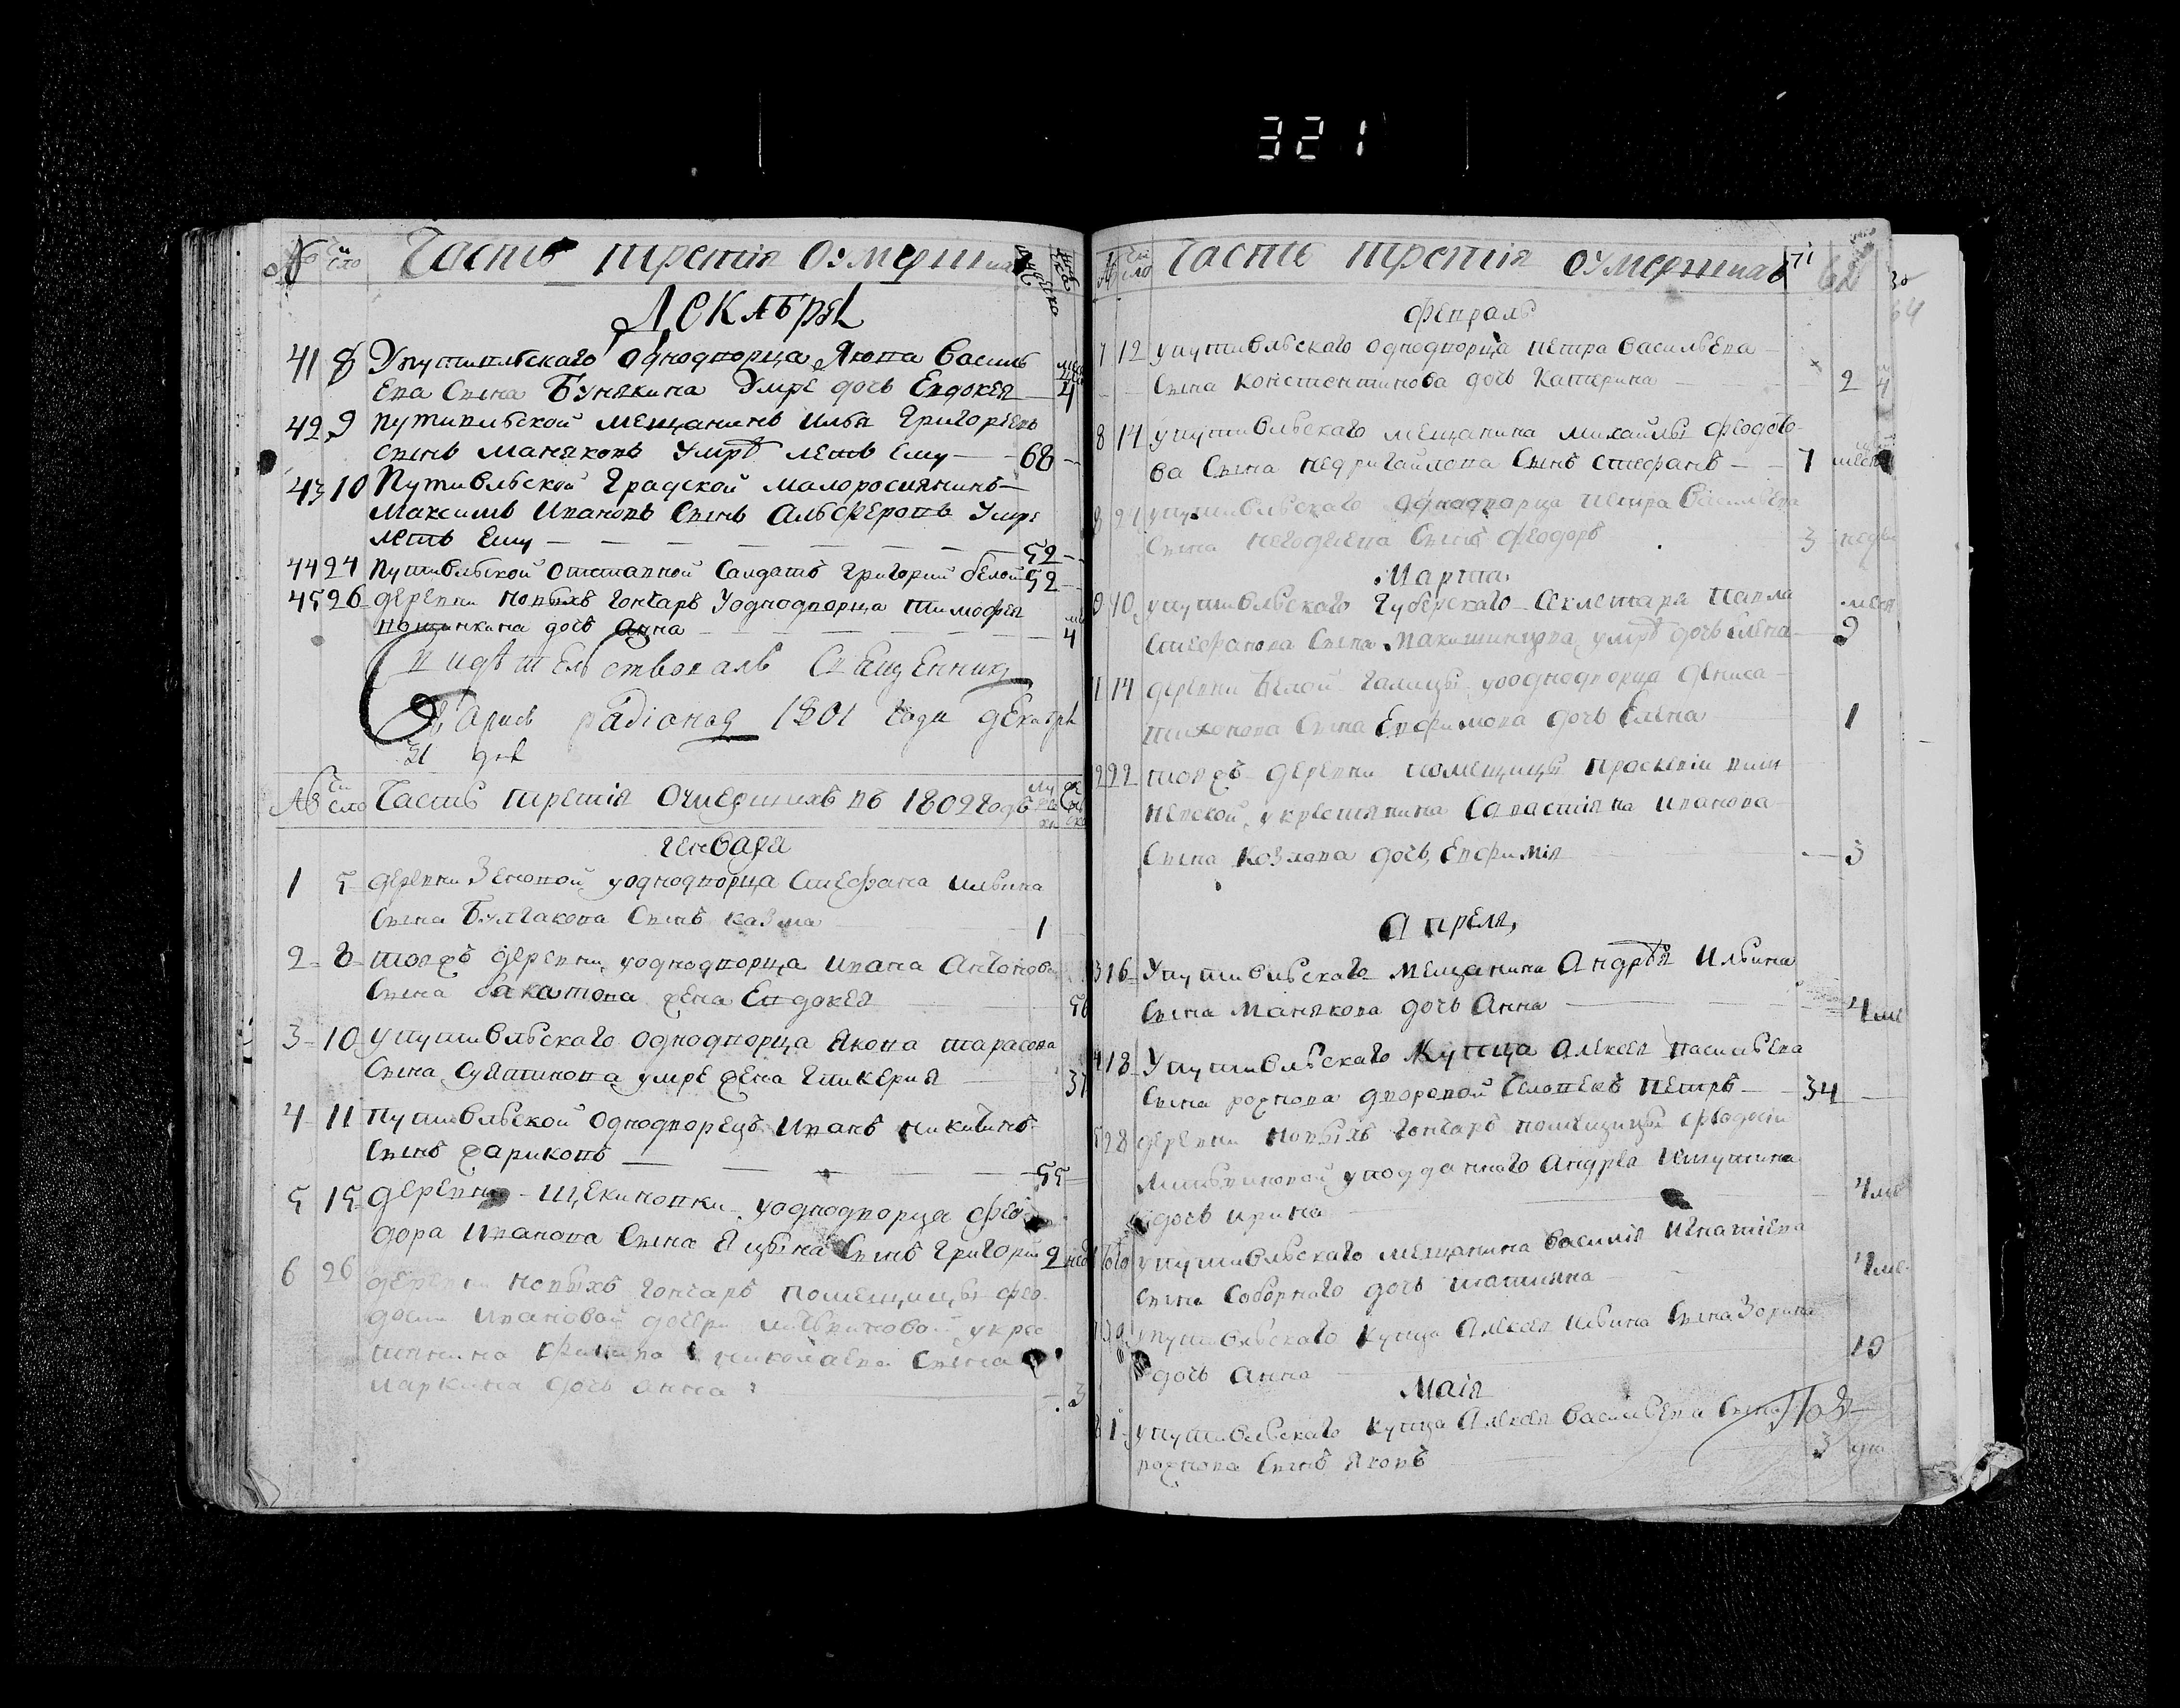 321
№ Чи сло Часть третія оумерших
Декабрь
41 8 Упутивльскаго однодворца Якова Василь
ева сына Бунякина умре дочь Евдокея 4
42 9 путивльской мещанинъ Илья Григорьевъ
сынъ Маняковъ умрѣ летъ ему 68
43 10 Путивльской градской малоросиянинъ
Максимъ Ивановъ сынъ Алѳеровъ умре
летъ ему 52
44 24 путивльской отставной салдатъ григорий белой 52
45 26 деревни новыхъ гончаръ уоднодворца тимофея
дочь анна 4
свидѣтельствовалъ священникъ
1801 года декабря
31 дня
№ Чи сло Часть третія оумершихъ въ 1802 годѣ
генваря
1 5 деревни Зеновой уоднодворца Стефана ильина
сына Булгакова сынъ казма 1
2 8 тояжъ деревни уоднодворца ивана антонова
сына жена Евдокея 56
3 10 упутивльскаго однодворца якова тарасова
сына умре жена гликерия 37
4 11 путивльской однодворецъ иванъ никитинъ
сынъ жариковъ 55
5 15 деревни Щекиновки уоднодворца фео
дора иванова сына Яцына сынъ григорий 2 нед
6 26 деревни новыхъ гончаръ помещицы фео
досии ивановой дочери литвиновой укрес
тянина филипа николаева сына
маркина дочь анна 3
№ Чи сло Часть третія оумершихъ 71 62 64
февраль
7 12 упутивльскаго однодворца петра васильева
сына константинова дочь катерина 2
8 14 упутивльскаго мещанина михайлы феодото
ва сына недригайлова сынъ стефанъ 7 месяц
8 24 упутивльскаго однодворца петра васильева
сына сынъ феодоръ 3 недѣ
Марта
9 10 упутивльскаго губерскаго секлетаря павла
стефанова сына умрѣ дочь елена 9
1 14 деревни белой галицы уоднодворца дениса
тихонова сына Ефимова дочь Елена 1
2 22 тояжъ деревни помещицы
укрестянина савастіяна иванова
сына козлова дочь Евфимія 3
Апреля
3 16 упутивльскаго мещанина Андрѣя ильина
сына манякова дочь анна 4 ме
4 18 упутивльскаго купца алексея васильева
сына рожнова дворовой человекъ петръ 34
5 28 деревни новыхъ гончаръ помещицы феодосіи
литвиновой уподданнаго андрея
дочь ирина 4 ме
6 упутивльскаго мещанина василія игнатіева
сына соборнаго дочь татияна 4 ме
7 30 упутивльскаго купца алексея ильина сына зорина
дочь анна 10
Маія
8 1 упутивльскаго купца алексея васильева сына
рожнова сынъ яковъ 3